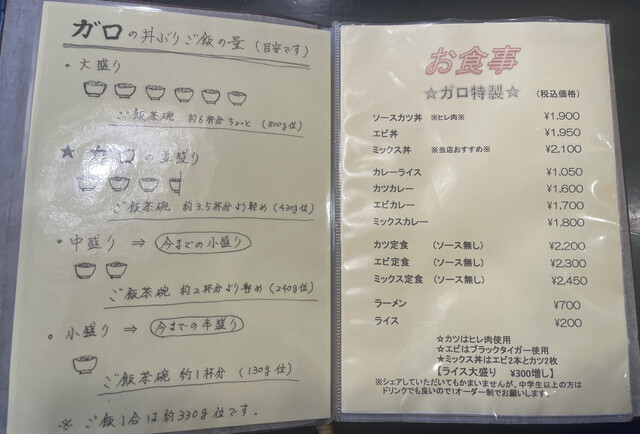 ガロの丼ぶりご飯の量 (目安です)
・大盛り
ご飯茶碗 約6杯分ちょっと (800g位)
★ ガロの並盛り
ご飯茶碗 約3.5杯分より軽め (430g位)
・中盛り ⇒ 今までの小盛り
ご飯茶碗 約2杯分より軽め (240g位)
・小盛り ⇒ 今までの半盛り
ご飯茶碗 約1杯分 (130g位)
※ ご飯1合は約330g位です。
お食事
☆ガロ特製☆ (税込価格)
ソースカツ丼 ※ヒレ肉※ ¥1,900
エビ丼 ¥1,950
ミックス丼 ※当店おすすめ※ ¥2,100
カレーライス ¥1,050
カツカレー ¥1,600
エビカレー ¥1,700
ミックスカレー ¥1,800
カツ定食 (ソース無し) ¥2,200
エビ定食 (ソース無し) ¥2,300
ミックス定食 (ソース無し) ¥2,450
ラーメン ¥700
ライス ¥200
☆カツはヒレ肉使用
☆エビはブラックタイガー使用
★ミックス丼はエビ2本とカツ2枚
【ライス大盛り ¥300増し】
※シェアしていただいてもかまいませんが、中学生以上の方は
ドリンクでも良いので1オーダー制でお願いします。